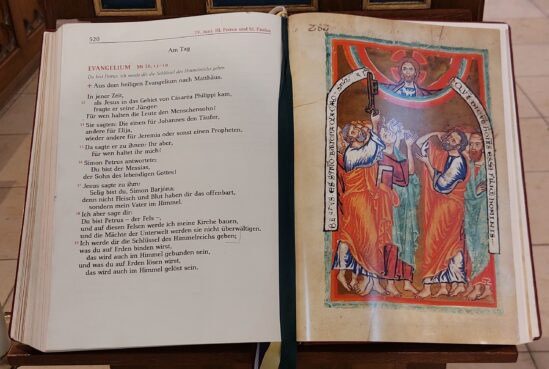 520
29. Juni. Hl. Petrus und Hl. Paulus
Am Tag
EVANGELIUM Mt 16, 13–19
Du bist Petrus, ich werde dir die Schlüssel des Himmelreichs geben
+ Aus dem heiligen Evangelium nach Matthäus.
In jener Zeit,
13 als Jesus in das Gebiet von Cäsaréa Philíppi kam,
fragte er seine Jünger:
Für wen halten die Leute den Menschensohn?
14 Sie sagten: Die einen für Johannes den Täufer,
andere für Elíja,
wieder andere für Jeremía oder sonst einen Propheten.
15 Da sagte er zu ihnen: Ihr aber,
für wen haltet ihr mich?
16 Simon Petrus antwortete:
Du bist der Messias,
der Sohn des lebendigen Gottes!
17 Jesus sagte zu ihm:
Selig bist du, Simon Barjóna;
denn nicht Fleisch und Blut haben dir das offenbart,
sondern mein Vater im Himmel.
18 Ich aber sage dir:
Du bist Petrus – der Fels –,
und auf diesen Felsen werde ich meine Kirche bauen,
und die Mächte der Unterwelt werden sie nicht überwältigen.
19 Ich werde dir die Schlüssel des Himmelreichs geben;
was du auf Erden binden wirst,
das wird auch im Himmel gebunden sein,
und was du auf Erden lösen wirst,
das wird auch im Himmel gelöst sein.